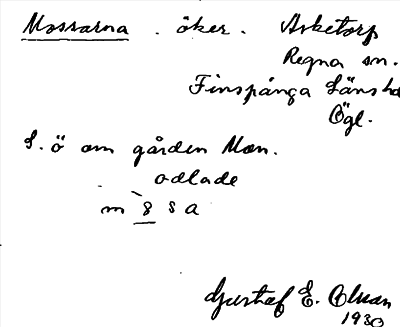 Mossarna . öker. Asketorp
Regna sn.
Finspånga länshd
Ögl.
S. ö om gården Mon.
odlade
m 8 s a
Gustaf E. Olsson
1930